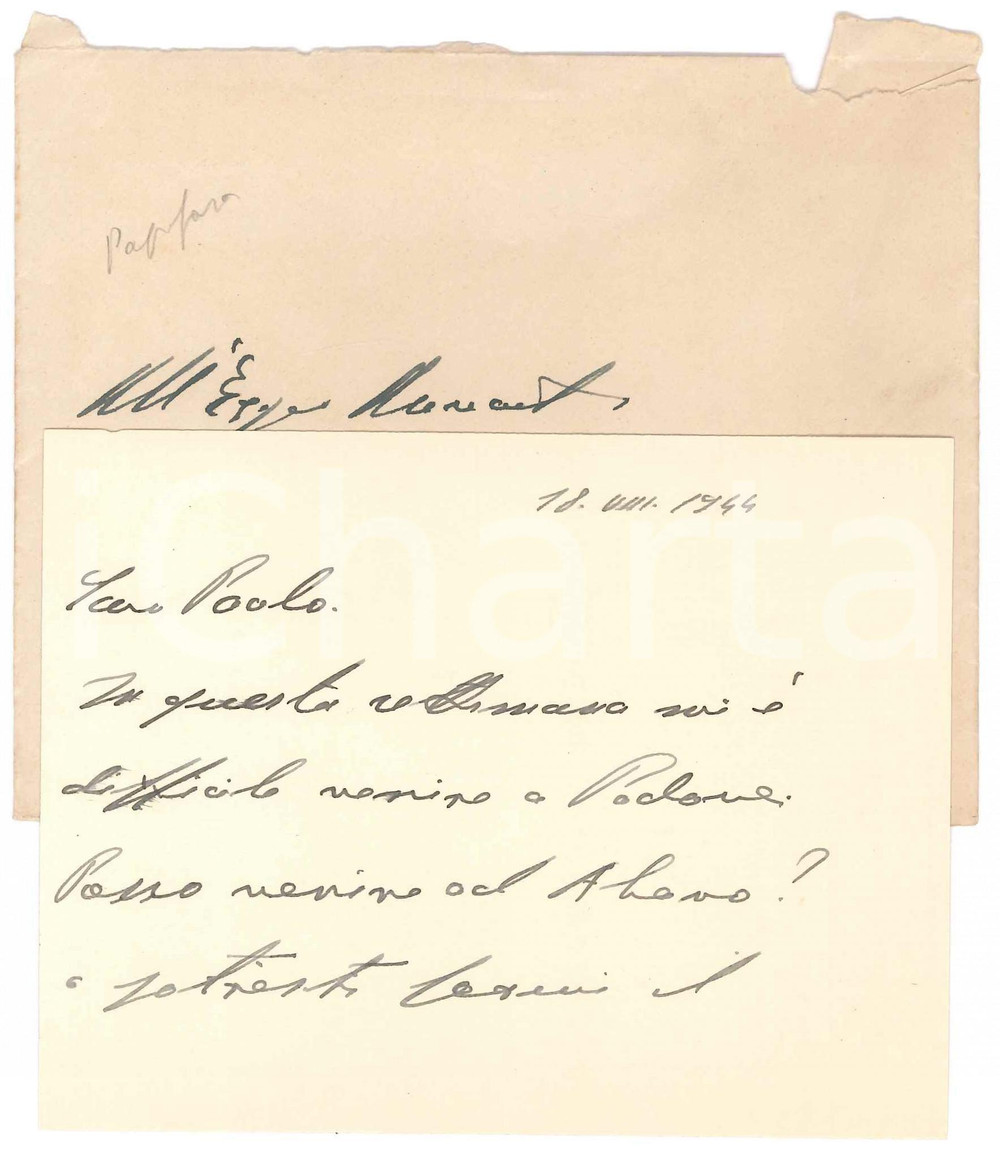 Papafava
All'Ecc.
18. VIII. 1944
Caro Paolo.
In questa settimana mi è
difficile venire a Padova.
Posso venire ad Abano?
o potresti farmi il
iCharta